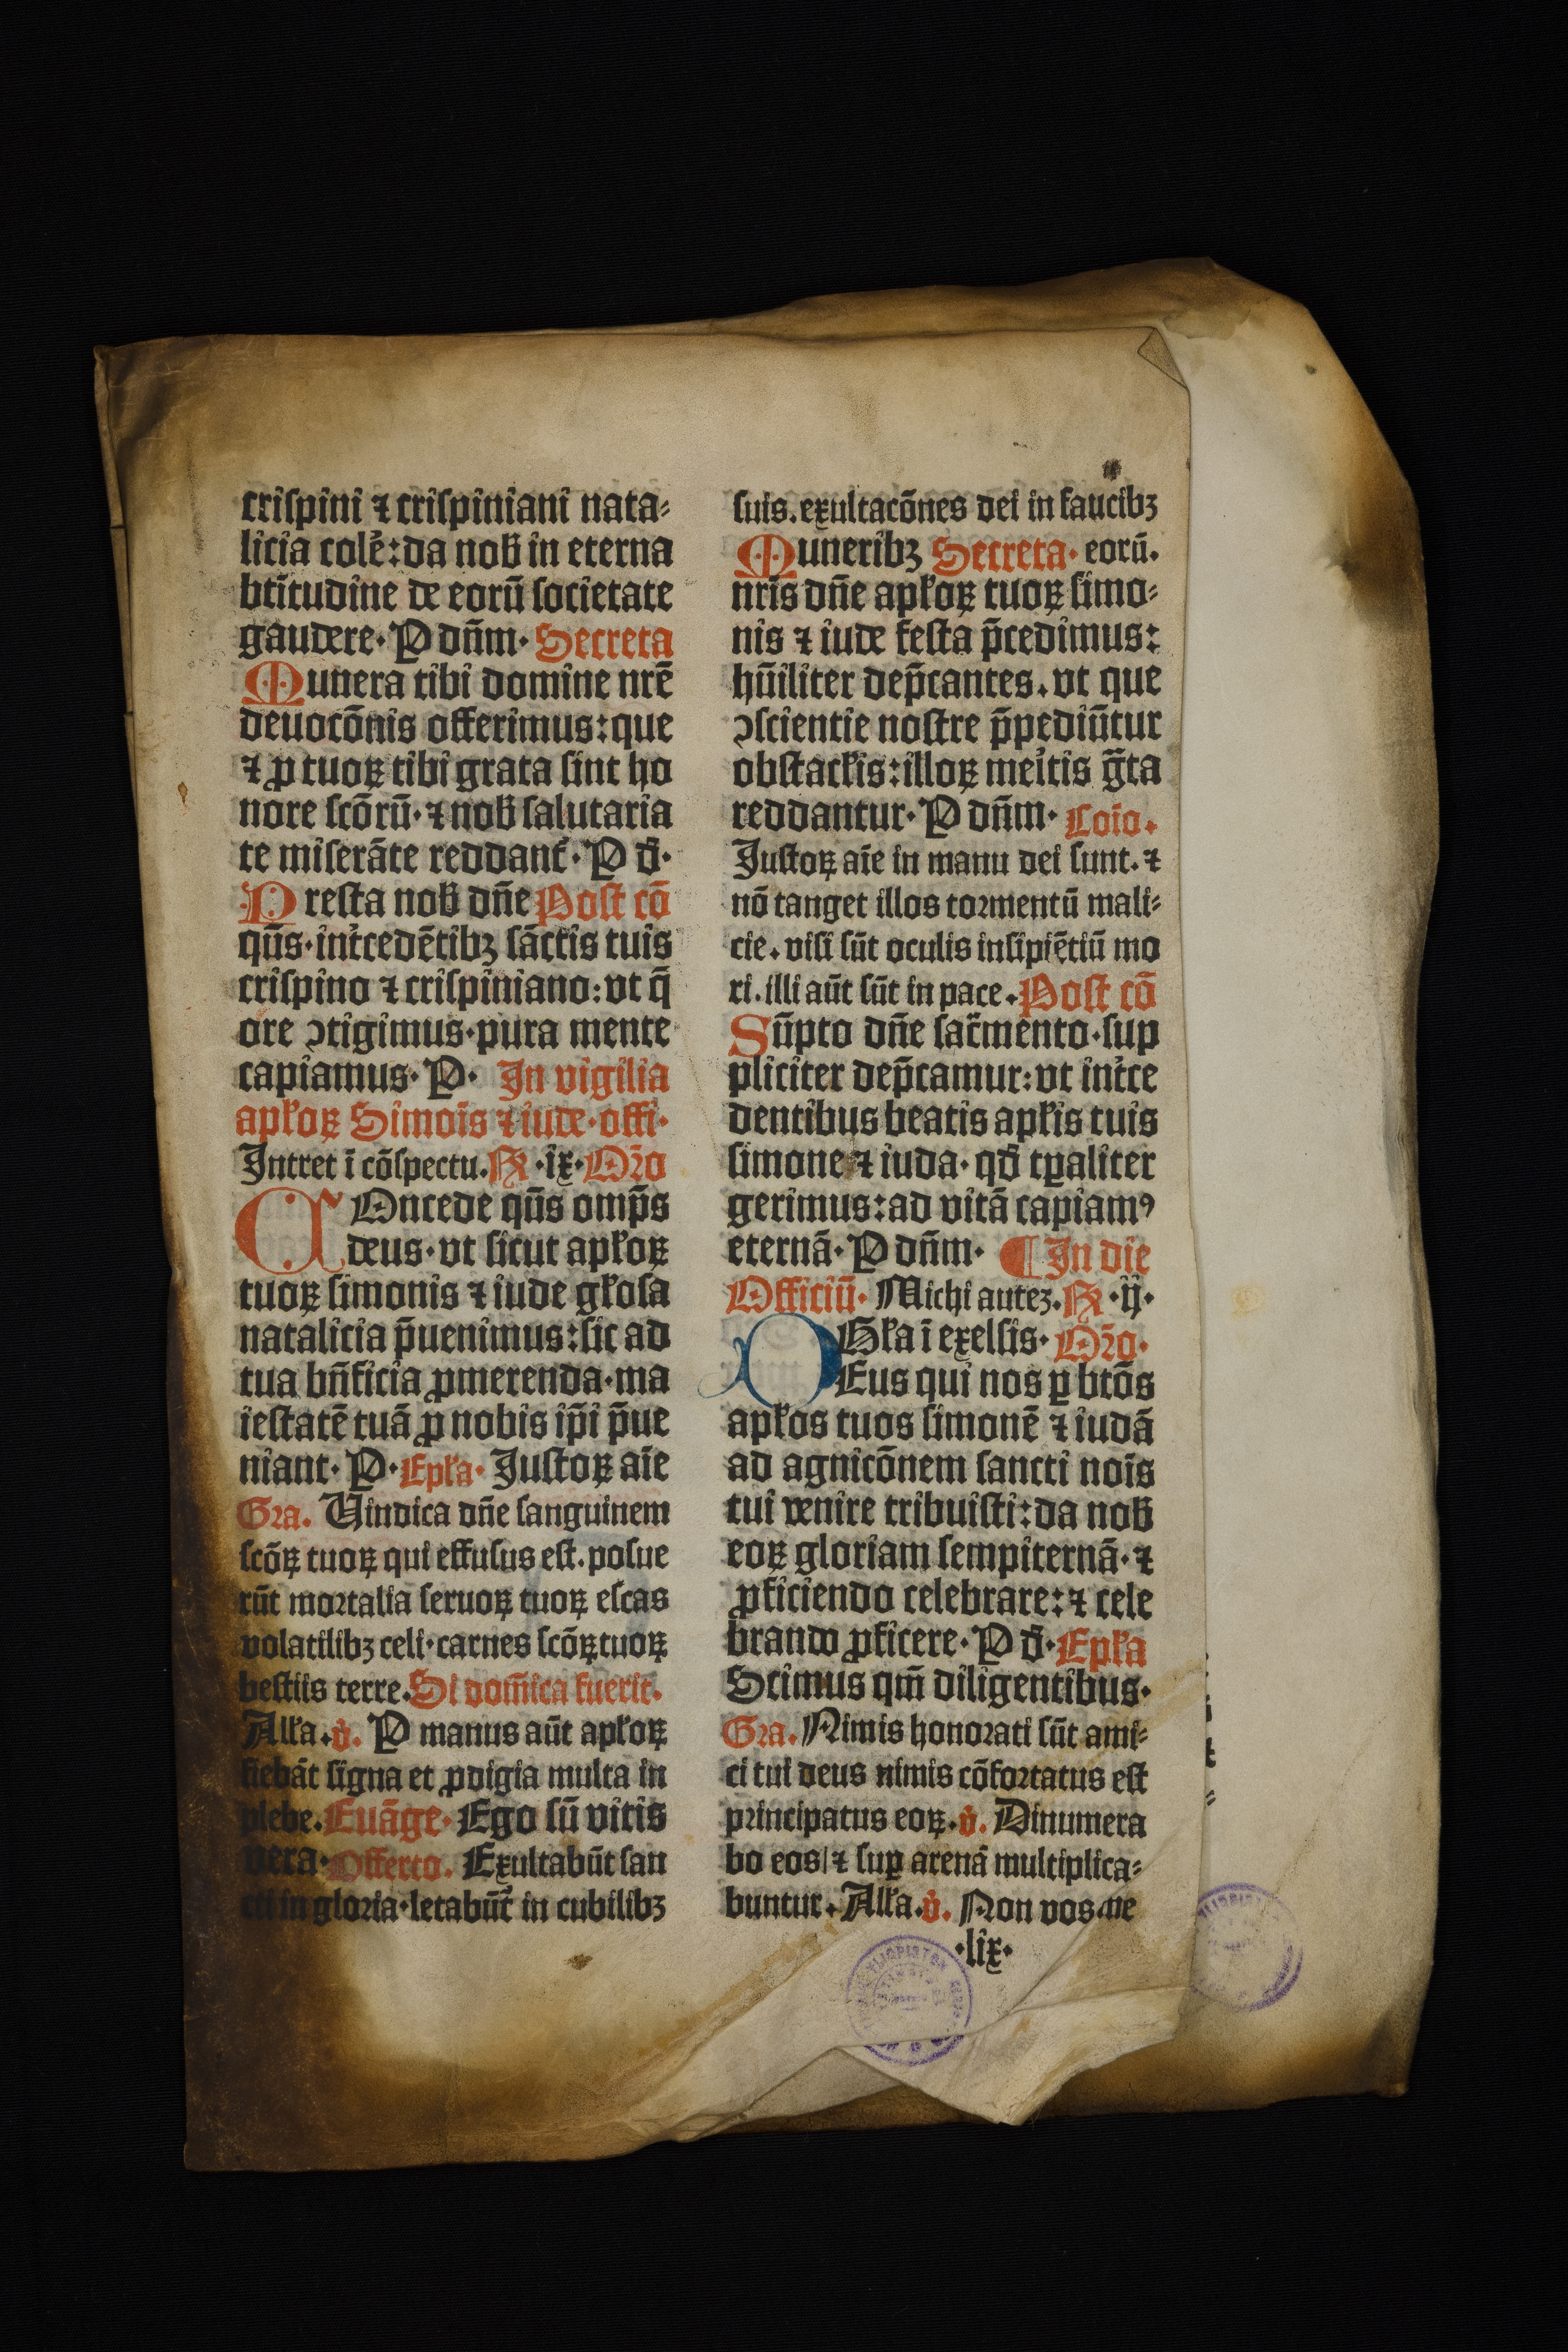 crispini ⁊ crispiniani nata⸗
licia colẽ: da nob̃ in eterna
btĩtudine de eorũ societate
gaudere· P dñm· Secreta
Munera tibi domine nrẽ
deuocõnis offerimus: que
⁊ ꝓ tuoꝝ tibi grata sint ho
nore scõrũ· ⁊ nob̃ salutaria
te miserãte reddant̃· P d̃·
Presta nob̃ dñe Post cõ
qũs· int̃cedẽtibꝫ sãctis tuis
crispino ⁊ crispiniano: vt q̃
ore ꝯtigimus· pura mente
capiamus· P· In vigilia
apl̓oꝝ Simoĩs ⁊ iude· offi·
Intret ĩ cõspectu. R̃ ·ix· Oꝛ̃o
COncede qũs omp̃s
deus· vt sicut apl̓oꝝ
tuoꝝ simonis ⁊ iude gl̓osa
natalicia p̃uenimus: sic ad
tua bñficia ꝓmerenda· ma
iestatẽ tuã ꝓ nobis ip̃i p̃ue
niant· P· Epl̓a· Justoꝝ aĩe
Gꝛa. Vindica dñe sanguinem
scõꝝ tuoꝝ qui effusus est. posue
rũt moꝛtalia seruoꝝ tuoꝝ escas
volatilibꝫ celi· carnes scõꝝ tuoꝝ
bestiis terre. Si domĩca fuerit.
All̓a. v̓. P manus aũt apl̓oꝝ
fiebãt signa et ꝓdigia multa in
plebe. Euãge· Ego sũ vitis
vera· Offerto. Exultabũt san
cti in gloria· letabũt̃ in cubilibꝫ
suis. exultacõnes dei in faucibꝫ
Muneribꝫ Secreta· eorũ.
nrĩs dñe apl̓oꝝ tuoꝝ simo⸗
nis ⁊ iude festa p̃cedimus:
hũiliter dep̃cantes. vt que
ꝯscientie nostre p̃pediũtur
obstacl̓is: illoꝝ meĩtis g̃ta
reddantur· P dñm· Coĩo.
Justoꝝ aĩe in manu dei sunt. ⁊
nõ tanget illos toꝛmentũ mali⸗
cie. visi sũt oculis insipiẽtiũ mo
ri. illi aũt sũt in pace. Post cõ
Sũpto dñe sac̃mento· sup
pliciter dep̃camur: vt int̃ce
dentibus beatis apl̓is tuis
simone ⁊ iuda· qd̃ tꝑaliter
gerimus: ad vitã capiamꝰ
eternã· P dñm· ¶ In die
Officiũ· Michi auteꝫ. R̃ ·ij·
Gl̓a ĩ exelsis· Oꝛ̃o·
DEus qui nos ꝑ btõs
apl̓os tuos simonẽ ⁊ iudã
ad agnicõnem sancti noĩs
tui venire tribuisti: da nob̃
eoꝝ gloriam sempiternã· ⁊
ꝓficiendo celebrare: ⁊ cele
brando ꝓficere· P d̃· Epl̓a
Scimus qm̃ diligentibus·
Gꝛa. Nimis honoꝛati sũt ami⸗
ci tui deus nimis cõfoꝛtatus est
pꝛincipatus eoꝝ. v̓. Dinumera
bo eos ⁊ suꝑ arenã multiplica⸗
buntur. All̓a. v̓. Non vos me
·lix·